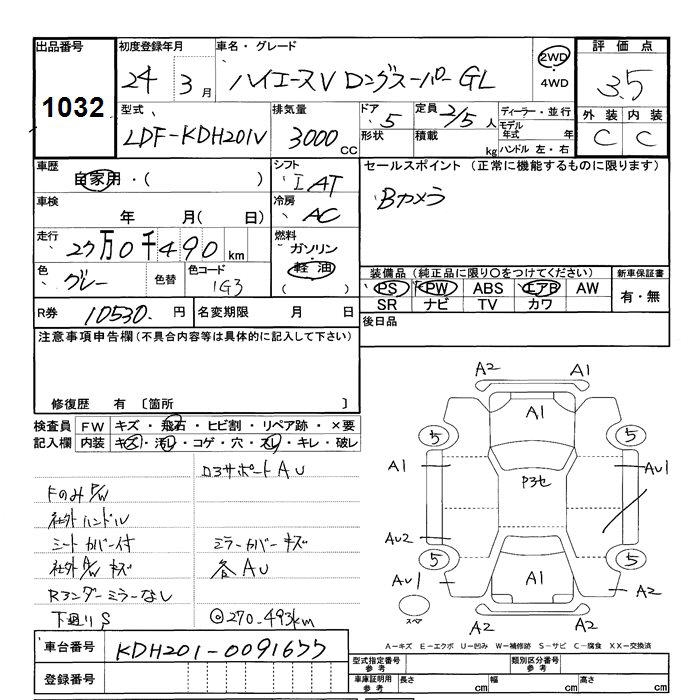 出品番号
1032
初度登録年月
24 3月
車名・グレード
ハイエースV ロングスーパーGL
2WD
・
4WD
評価点
3.5
外装 内装
C C
型式
LDF-KDH201V
排気量
3000 CC
ドア 5
形状
定員 2/5人
積載 kg
ディーラー・並行
モデル年式 年
ハンドル 左・右
車歴
自家用・( )
シフト
IAT
セールスポイント (正常に機能するものに限ります)
Bカメラ
車検
年 月( 日)
冷房
AC
走行
27万0千490km
燃料
ガソリン
・
軽油
( )
色
グレー
色替
色コード
1G3
装備品 (純正品に限り〇をつけてください)
PS PW ABS エアB AW
SR ナビ TV カワ
新車保証書
有・無
R券 10530.円
名変期限 月 日
後日品
注意事項申告欄(不具合内容等は具体的に記入して下さい)
修復歴 有 〔箇所 〕
検査員記入欄
FW キズ・飛石・ヒビ割・リペア跡・×要
内装 キズ・汚レ・コゲ・穴・スレ・キレ・破レ
ロ3サポートAU
FのみP/W
社外ハンドル
シートカバー付 ミラーカバーキズ
社外A/Wキズ 各AU
Rアンダーミラーなし
下廻りS ◎270.493km
A2 A1
A1
5 5
A1 P3セ AU1
AU2
5 5
AU1 A1 A2
スペア
A2 A2
A－キズ E－エクボ U－凹み W－補修跡 S－サビ C－腐食 XX－交換済
車台番号 KDH201-0091677
登録番号
型式指定番号 参考
類別区分番号 参考
車庫証明用 参考 長さ cm 幅 cm 高さ cm